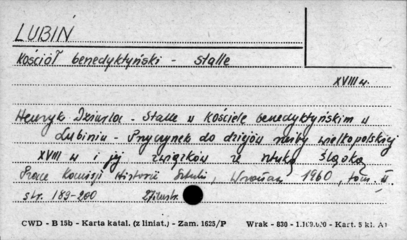 LUBIŃ
Kościół benedyktyński - stalle
XVIII w.
Henryk Dziurla - Stalle w kościele benedyktyńskim w
Lubiniu - Przyczynek do dziejów rzeźby wielkopolskiej
XVIII w i jej związków ze sztuką śląską,
Prace Komisji Historii Sztuki, Wrocław 1960, tom. II.
str. 189-200 Ilustr.
CWD - B 15b - Karta katal. (z liniat.) - Zam. 1625/P Wrak - 830 - Kart. 5 kl. A1